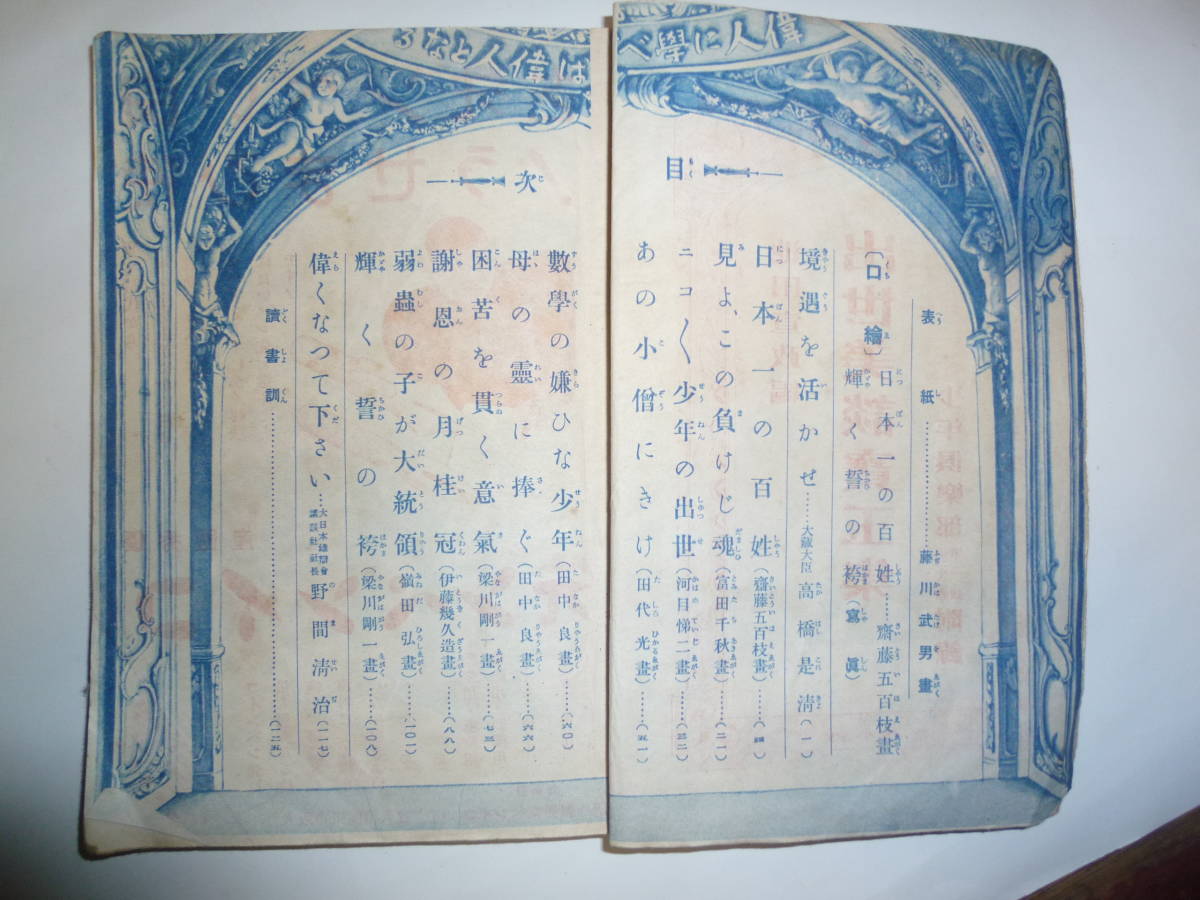 偉人に學べ
は偉人となる
目次
表紙……藤川武男畫
〔口繪〕
日本一の百姓……齋藤五百枝畫
輝く誓の袴(寫眞)
境遇を活かせ……大藏大臣高橋是淸(一)
日本一の百姓(齋藤五百枝畫)……(四)
見よ、この負けじ魂(富田千秋畫)……(二一)
ニコ〱少年の出世(河目悌二畫)……(三二)
あの小僧にきけ(田代光畫)……(五一)
數學の嫌ひな少年(田中良畫)……(六〇)
母の靈に捧ぐ(田中良畫)……(六六)
困苦を貫く意氣(梁川剛一畫)……(七三)
謝恩の月桂冠(伊藤幾久造畫)……(八八)
弱蟲の子が大統領(嶺田弘畫)……(一〇一)
輝く誓の袴(梁川剛一畫)……(一〇八)
偉くなつて下さい…大日本雄辯會講談社社長野間淸治(一一七)
讀書訓……(一二五)